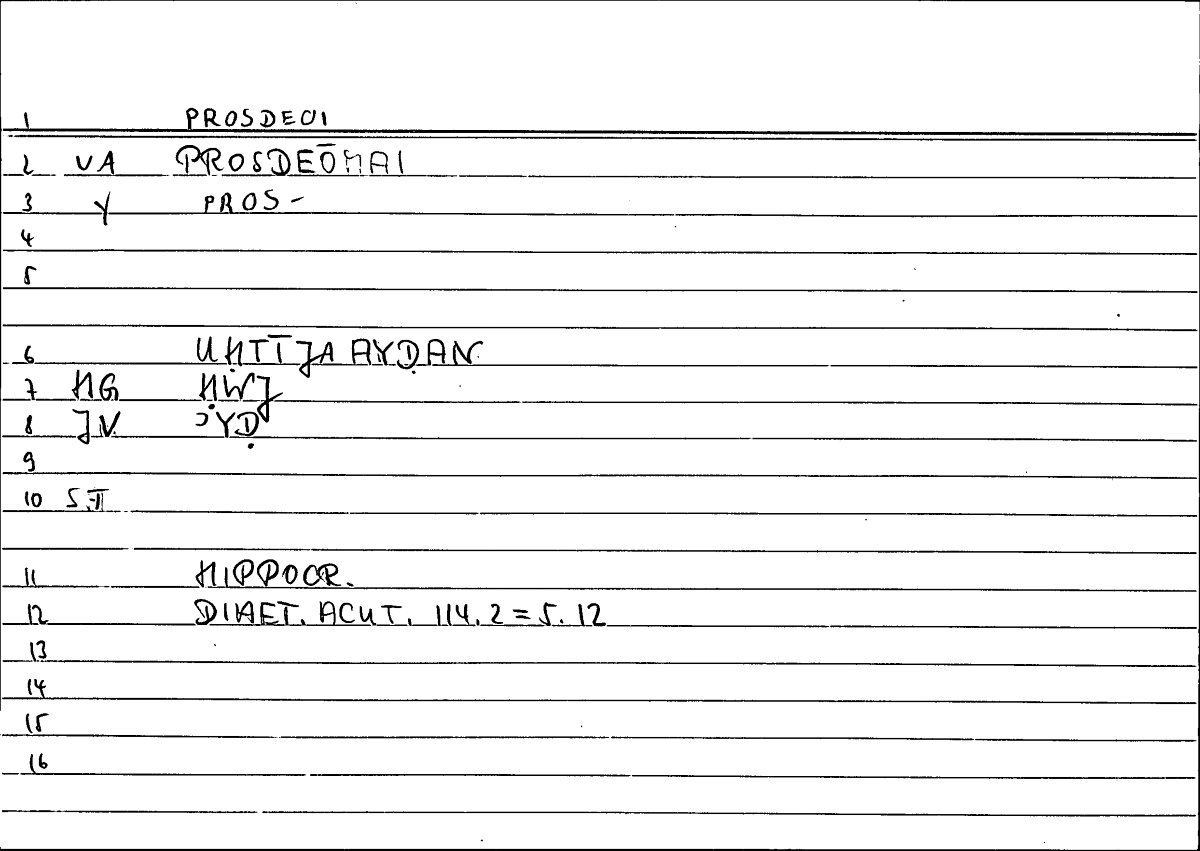 1 PROSDEOI
2 VA PROSDEŌMAI
3 Y PROS-
4
5
6 UḤTĪJA AYḌAN
7 HG ḤWJ
8 JV ʾYḌ
9
10 S.T
11 HIPPOCR.
12 DIAET. ACUT. 114.2 = 5.12
13
14
15
16